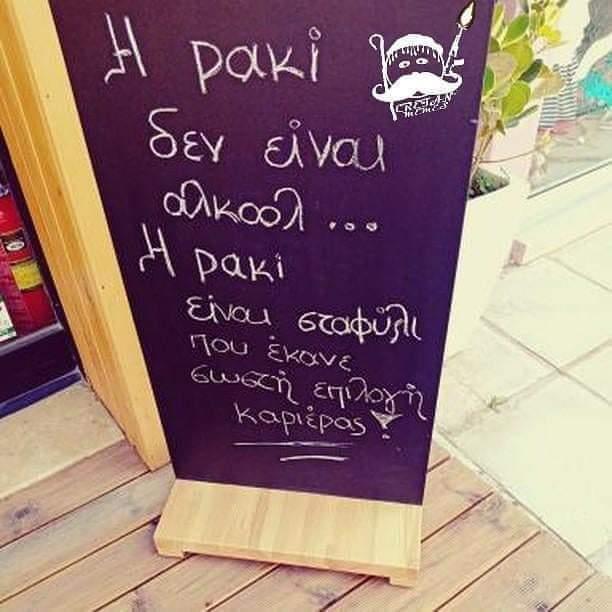 Η ρακί
CRETAN
MEMES
δεν είναι
αλκοολ ...
Η ρακί
είναι σταφύλι
που έκανε
σωστή επιλογή
καριέρας!